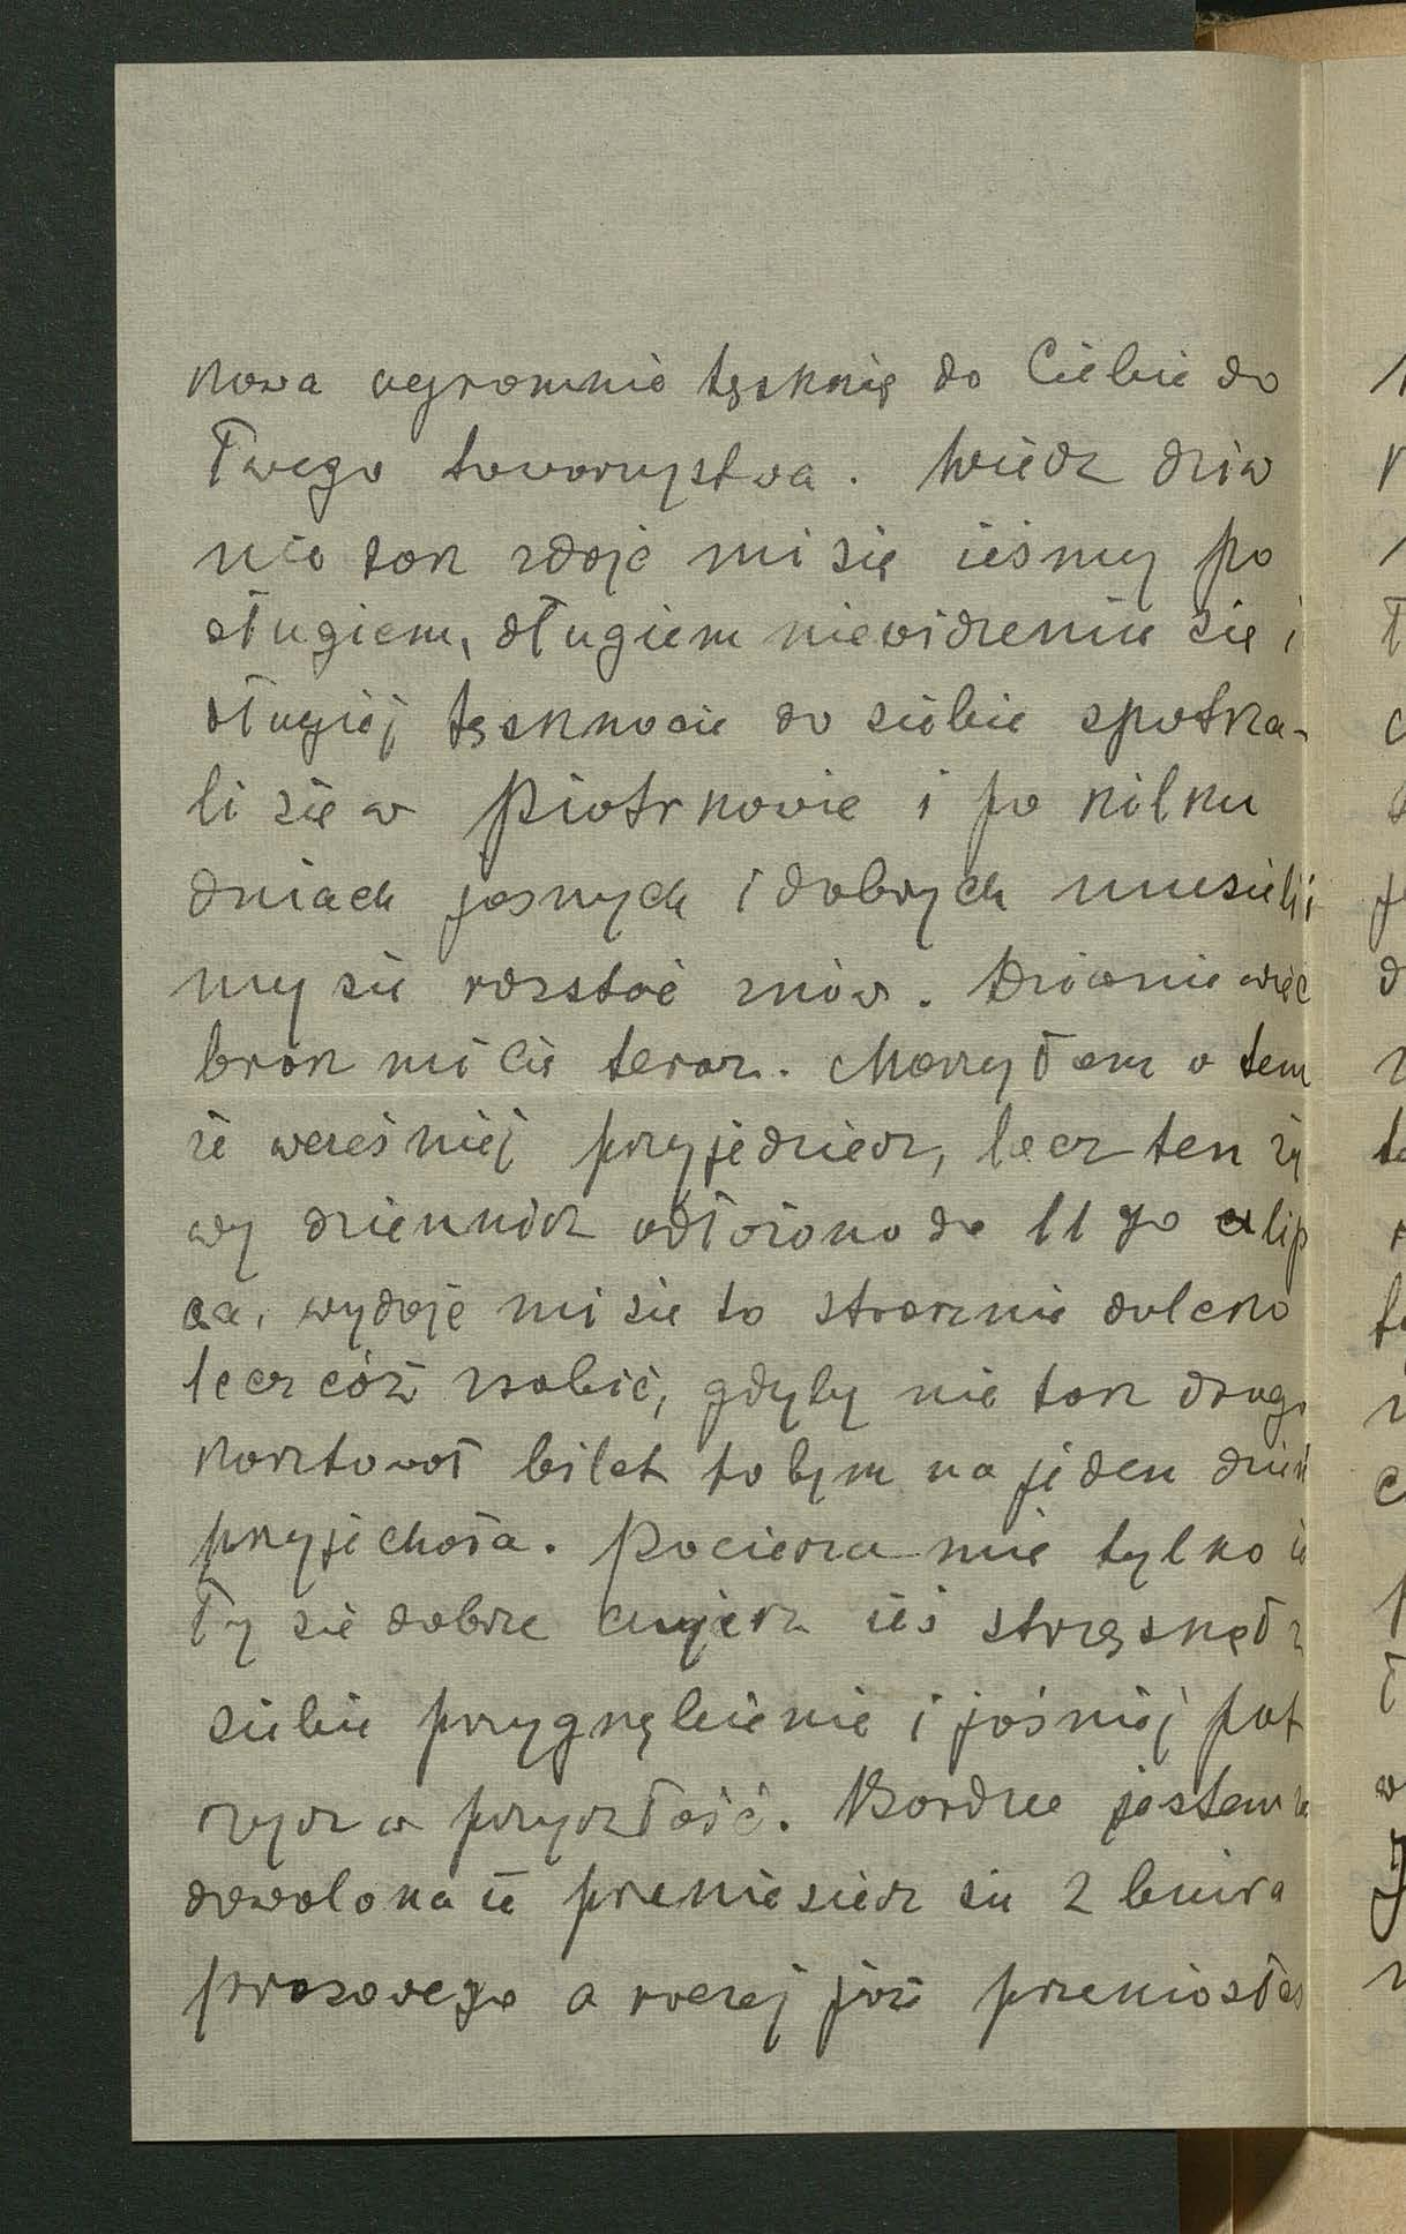 kowa ogromnie tęsknię do Ciebie do
Twego towarzystwa. Wiesz dziw
nie tak zdaje mi się żeśmy po
długiem, długiem niewidzeniu się i
długiej tęsknocie do siebie spotka-
li się w Piotrkowie i po kilku
dniach jasnych i dobrych musieliś
my się rozstać znów. Dziwnie więc
brak mi Cię teraz. Marzyłam o tem
że wcześniej przyjedziesz, lecz ten ży
wy dziennik odłożono do 11 go lip
ca, wydaje mi się to strasznie daleko
lecz cóż robić, gdyby nie tak drogo
kosztował bilet to bym na jeden dzień
przyjechała. Pociesza mię tylko że
Ty się dobrze czujesz żeś strząsnął z
siebie przygnębienie i jaśniej pat
rzysz w przyszłość. Bardzo jestem za
dowolona że przeniesiesz się z biura
prasowego a raczej już przeniosłeś